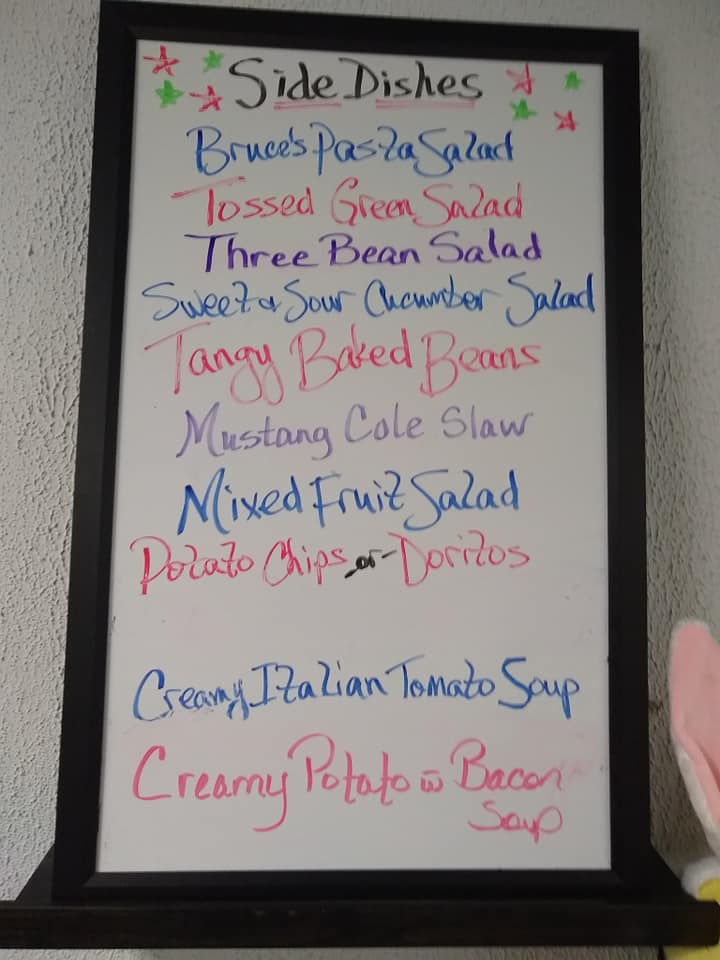 Side Dishes
Bruce's Pasta Salad
Tossed Green Salad
Three Bean Salad
Sweet & Sour Cucumber Salad
Tangy Baked Beans
Mustang Cole Slaw
Mixed Fruit Salad
Potato Chips or Doritos
Creamy Italian Tomato Soup
Creamy Potato w Bacon
Soup